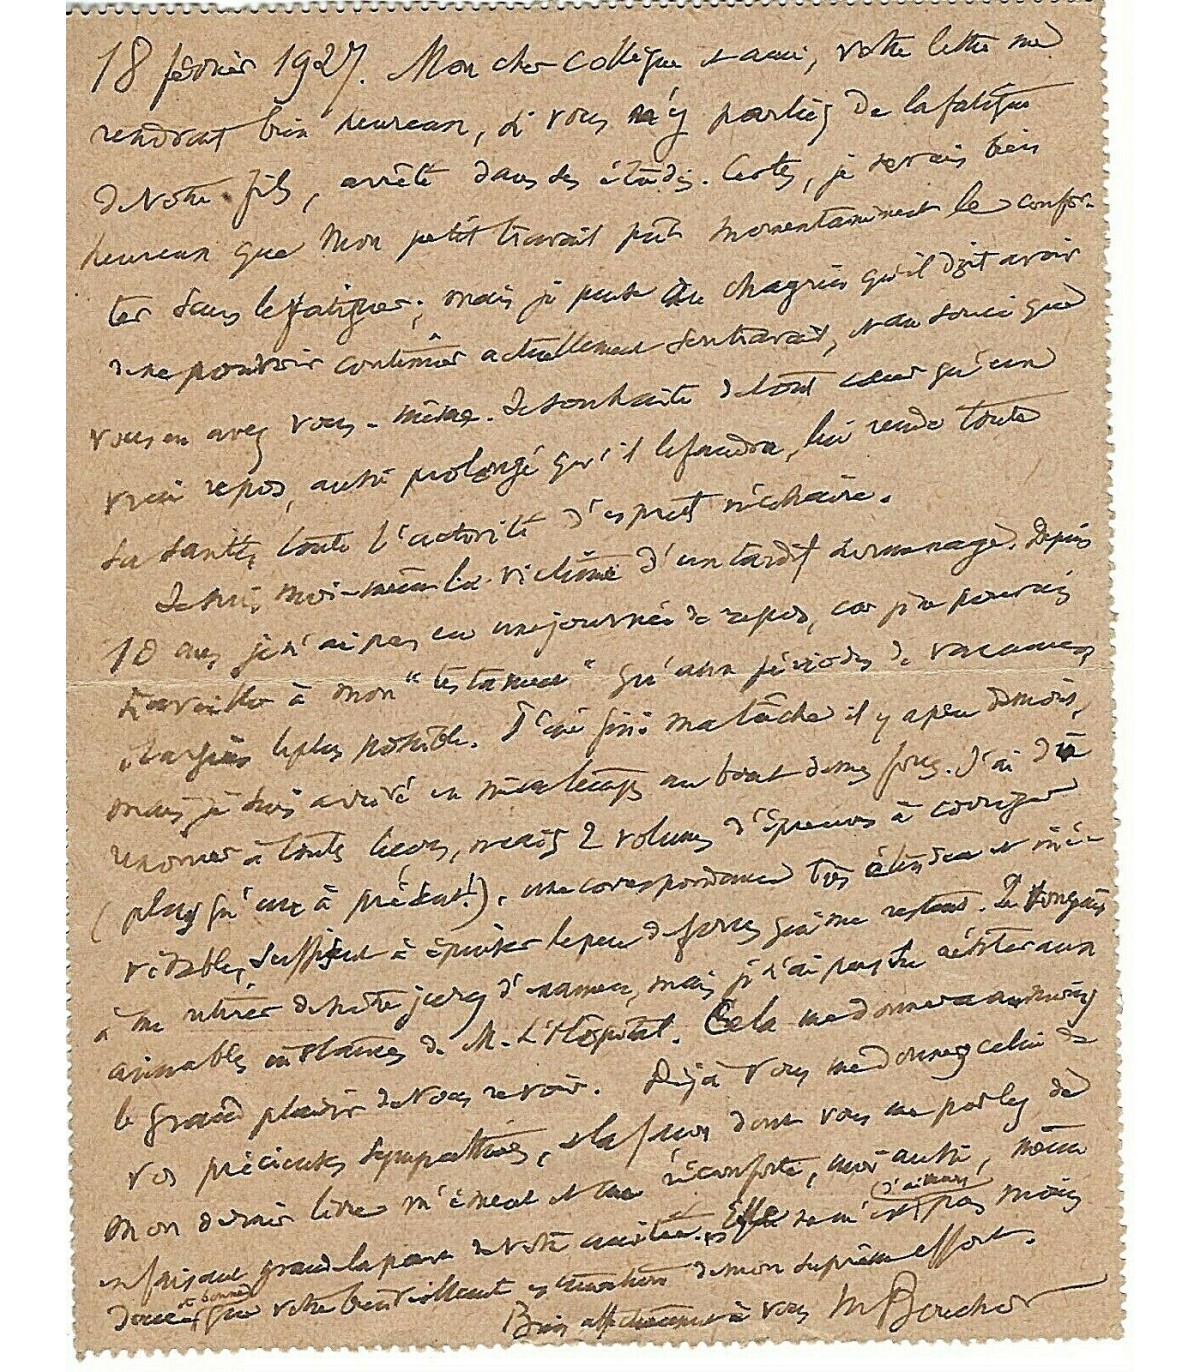 18 février 1927. Mon cher collègue et ami, votre lettre me
rendrait bien heureux, si vous n'y parliez de la fatigue
de votre fils, arrêté dans ses études. Certes, je serais bien
heureux que mon petit travail pût momentanément le confor-
ter sans le fatiguer; mais je pense au chagrin qu'il doit avoir
de ne pouvoir continuer actuellement son travail, et au souci que
vous en avez vous-même. Je souhaite de tout cœur qu'un
vrai repos, aussi prolongé qu'il le faudra, lui rende toute
sa santé, toute l'activité d'esprit nécessaire.
Je suis moi-même la victime d'un tardif surmenage. Depuis
10 ans, je n'ai pas eu une journée de repos, car je ne pouvais
travailler à mon "testament" qu'aux périodes de vacances,
élargies le plus possible. J'ai fini ma tâche il y a peu de mois,
mais je suis arrivé en même temps au bout de mes forces. J'ai dû
renoncer à toutes leçons, mais 2 volumes d'épreuves à corriger
(plus qu'un à présent!), une correspondance très étendue et iné-
vitable, suffisent à épuiser le peu de forces qui me restent. Je songeais
à me retirer de notre jury d'examen, mais je n'ai pas su résister aux
aimables instances de M. L'Hôpital. Cela me donnera au moins
le grand plaisir de vous revoir. Déjà vous me donnez celui de
vos précieuses sympathies, et la façon dont vous me parlez de
mon dernier livre m'émeut et me réconforte, moi aussi, même
en faisant grande la part de votre amitié. Elle ne m'est d'ailleurs pas moins
douce et bonne que votre bienveillante estimation de mon suprême effort.
Bien affectueusement à vous M Boucher